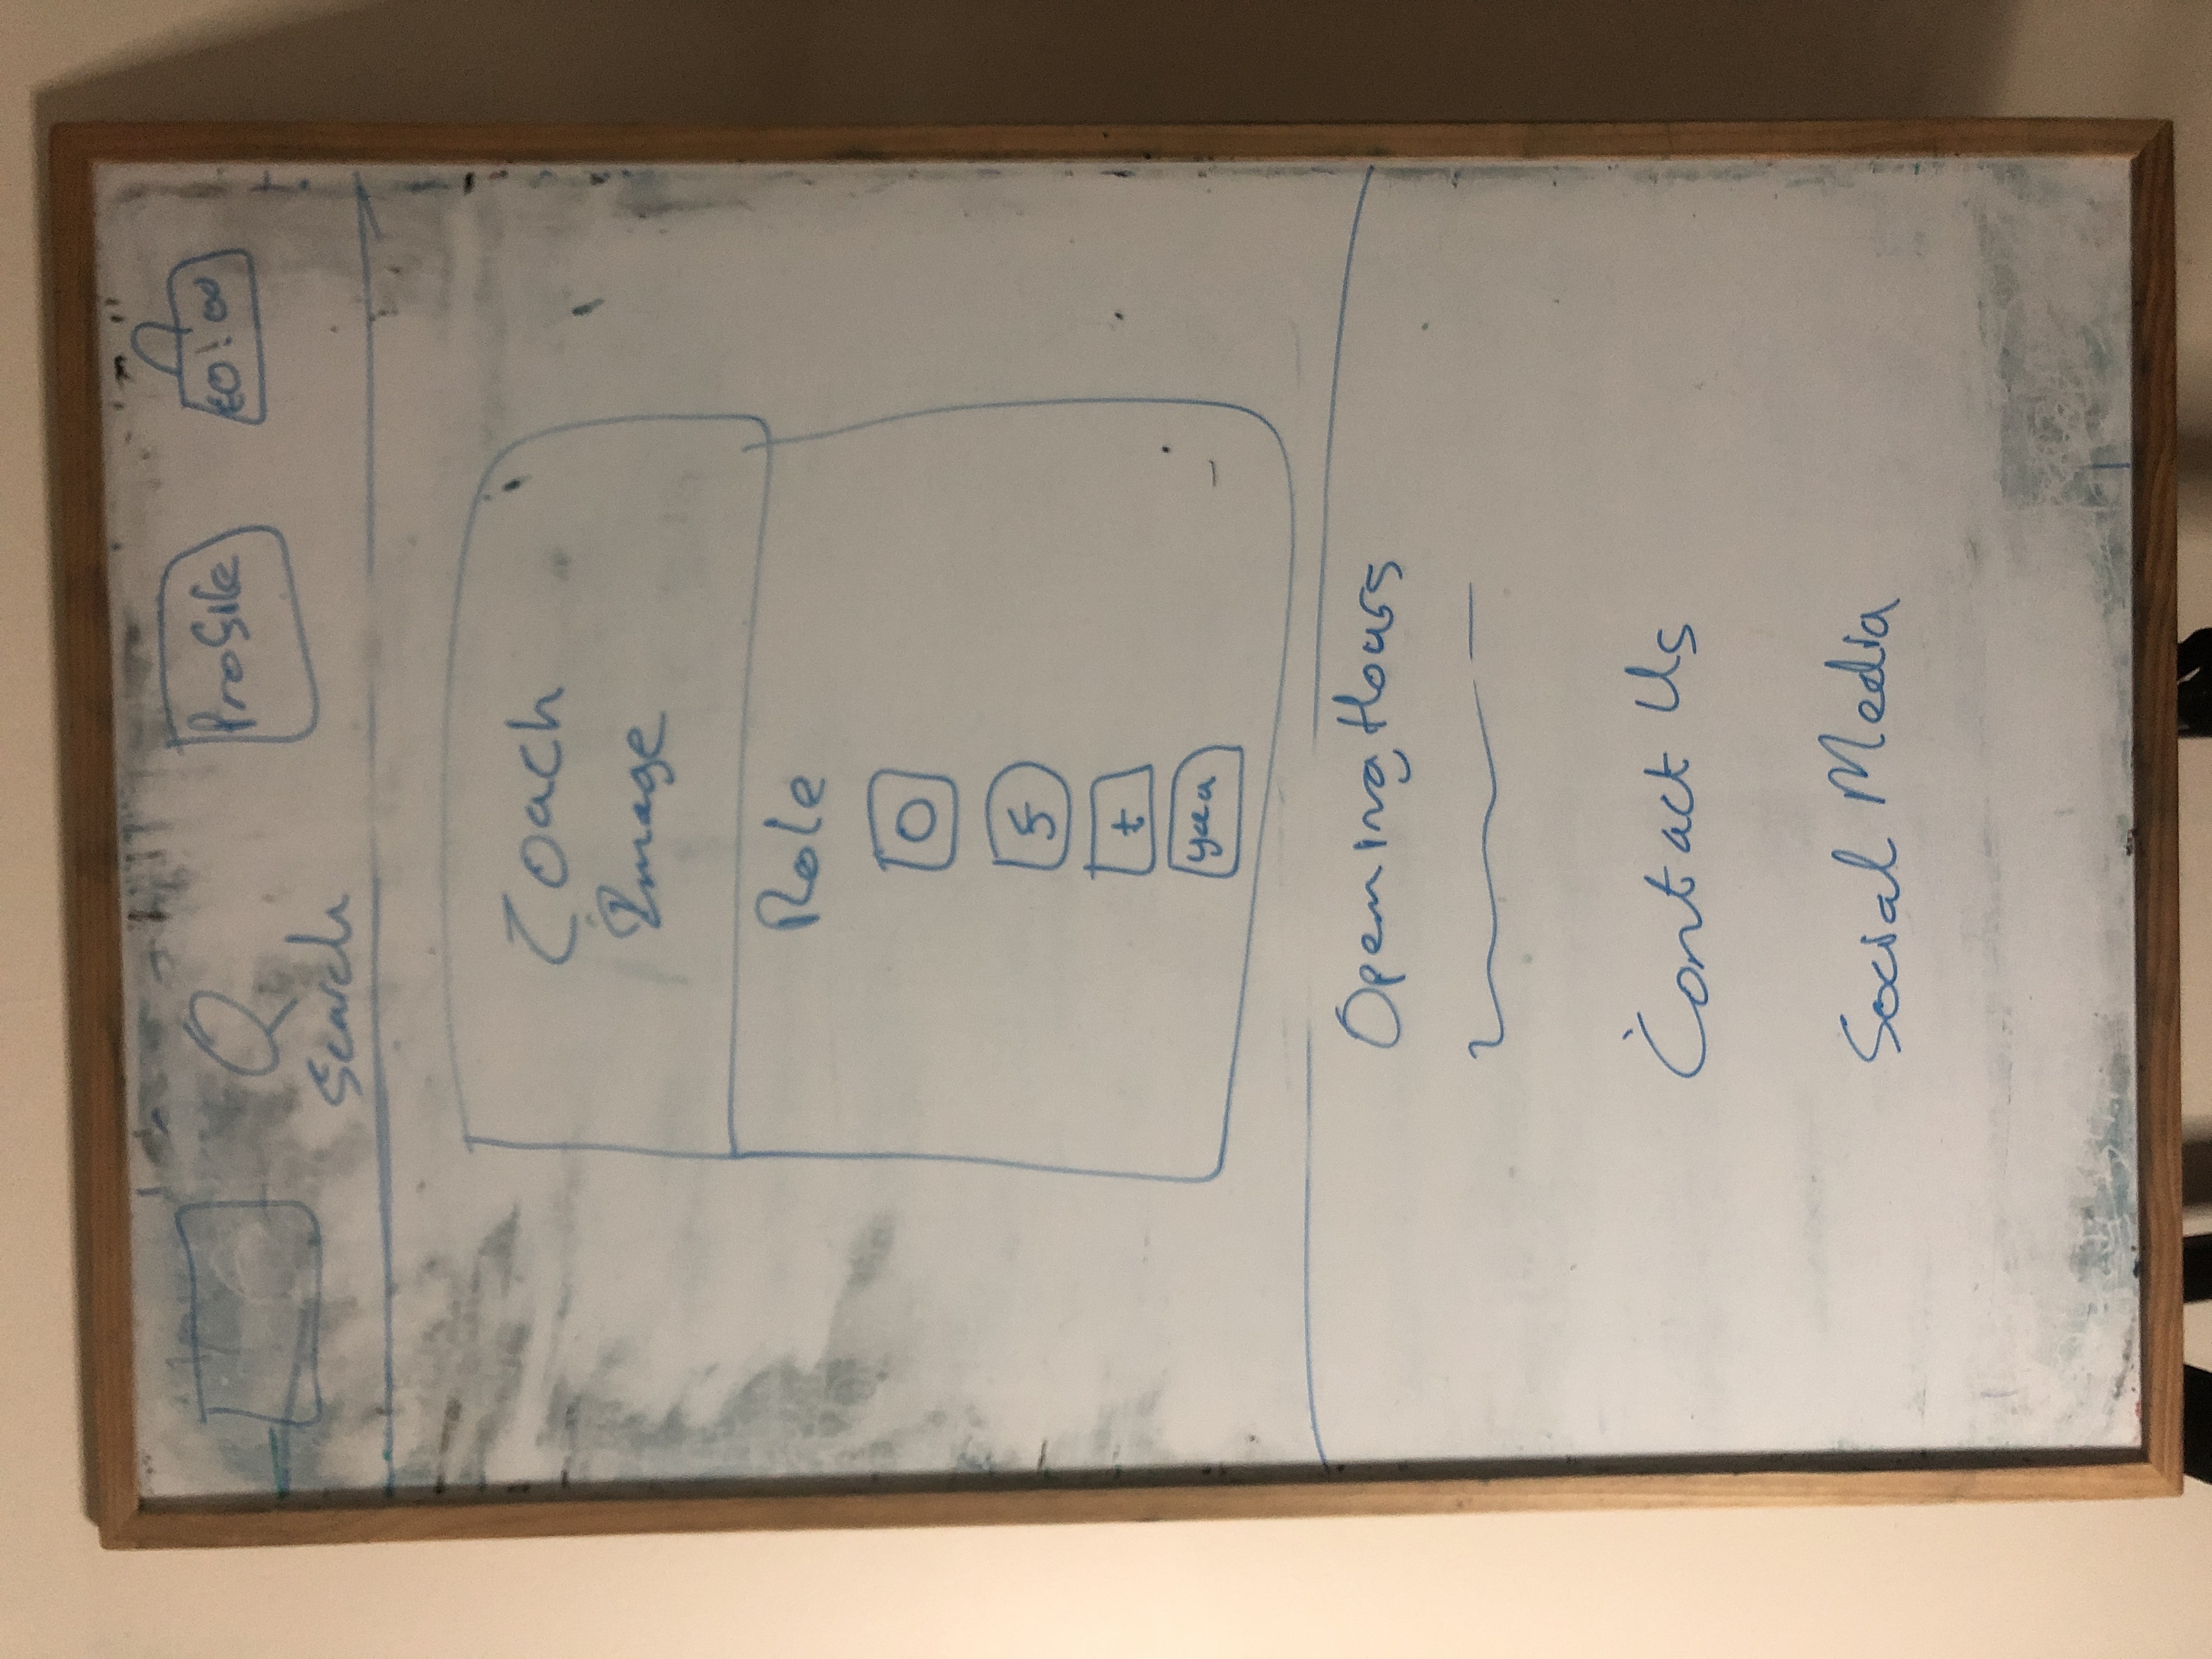 Search
Profile
£0.00
Coach
Image
Role
f
t
Opening Hours
Contact Us
Social Media